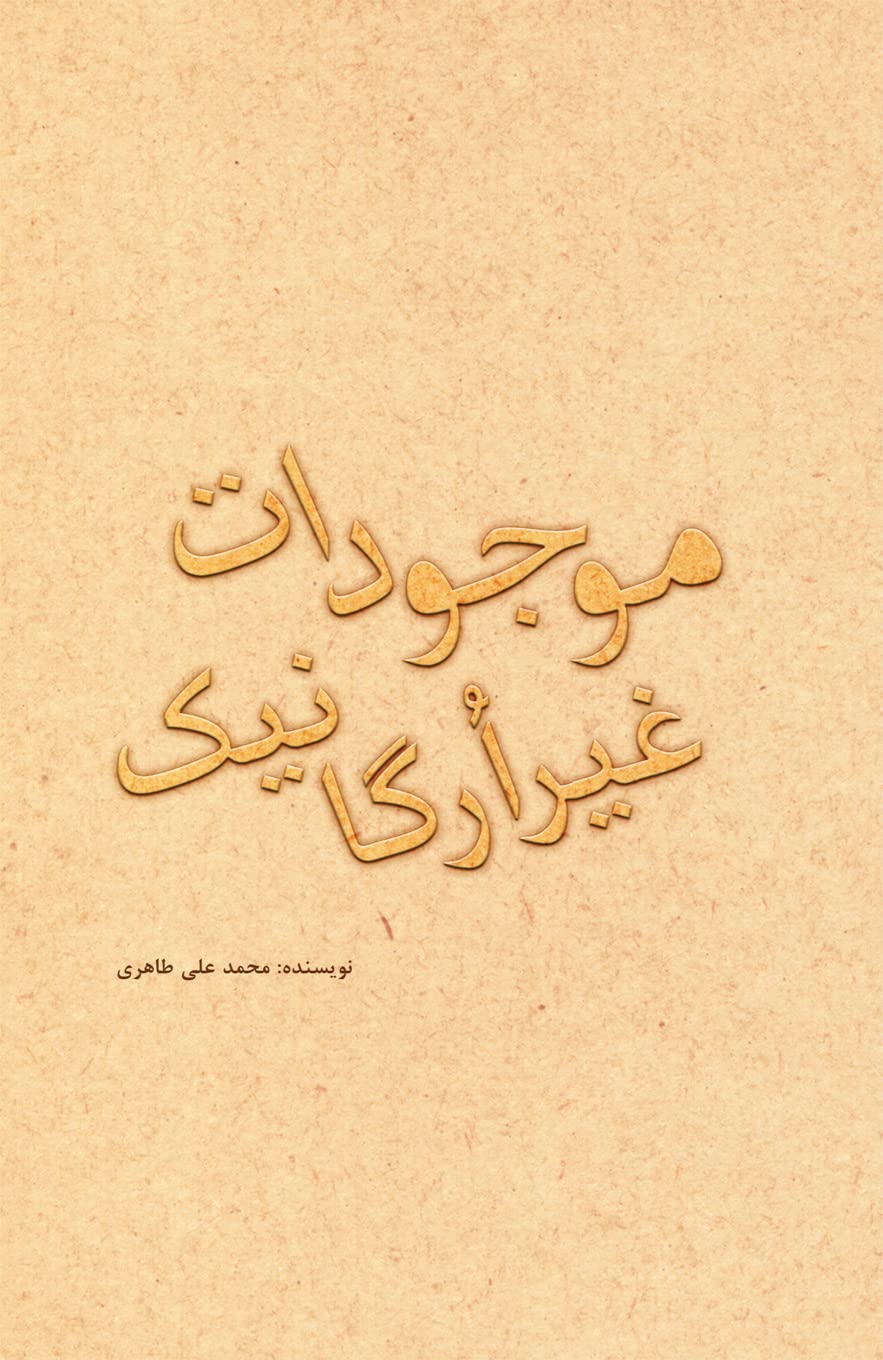 موجودات
غیر اُرگانیک
نویسنده: محمد علی طاهری